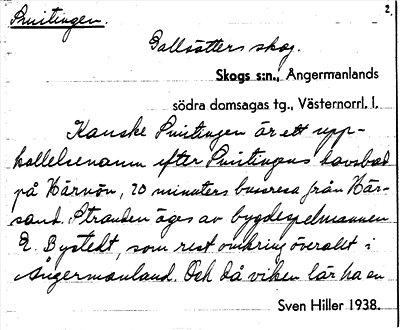 Smitingen.
2.
Gallsätters skog.
Skogs s:n., Ångermanlands
södra domsagas tg., Västernorrl. l.
Kanske Smitingen är ett upp-
kallelsenamn efter Smitingens havsbad
på Härnön, 20 minuters bussresa från Här-
sand. Stranden äges av bygdespelmannen
E. Bystedt, som rest omkring överallt i
Ångermanland. Och då viken lär ha en
Sven Hiller 1938.